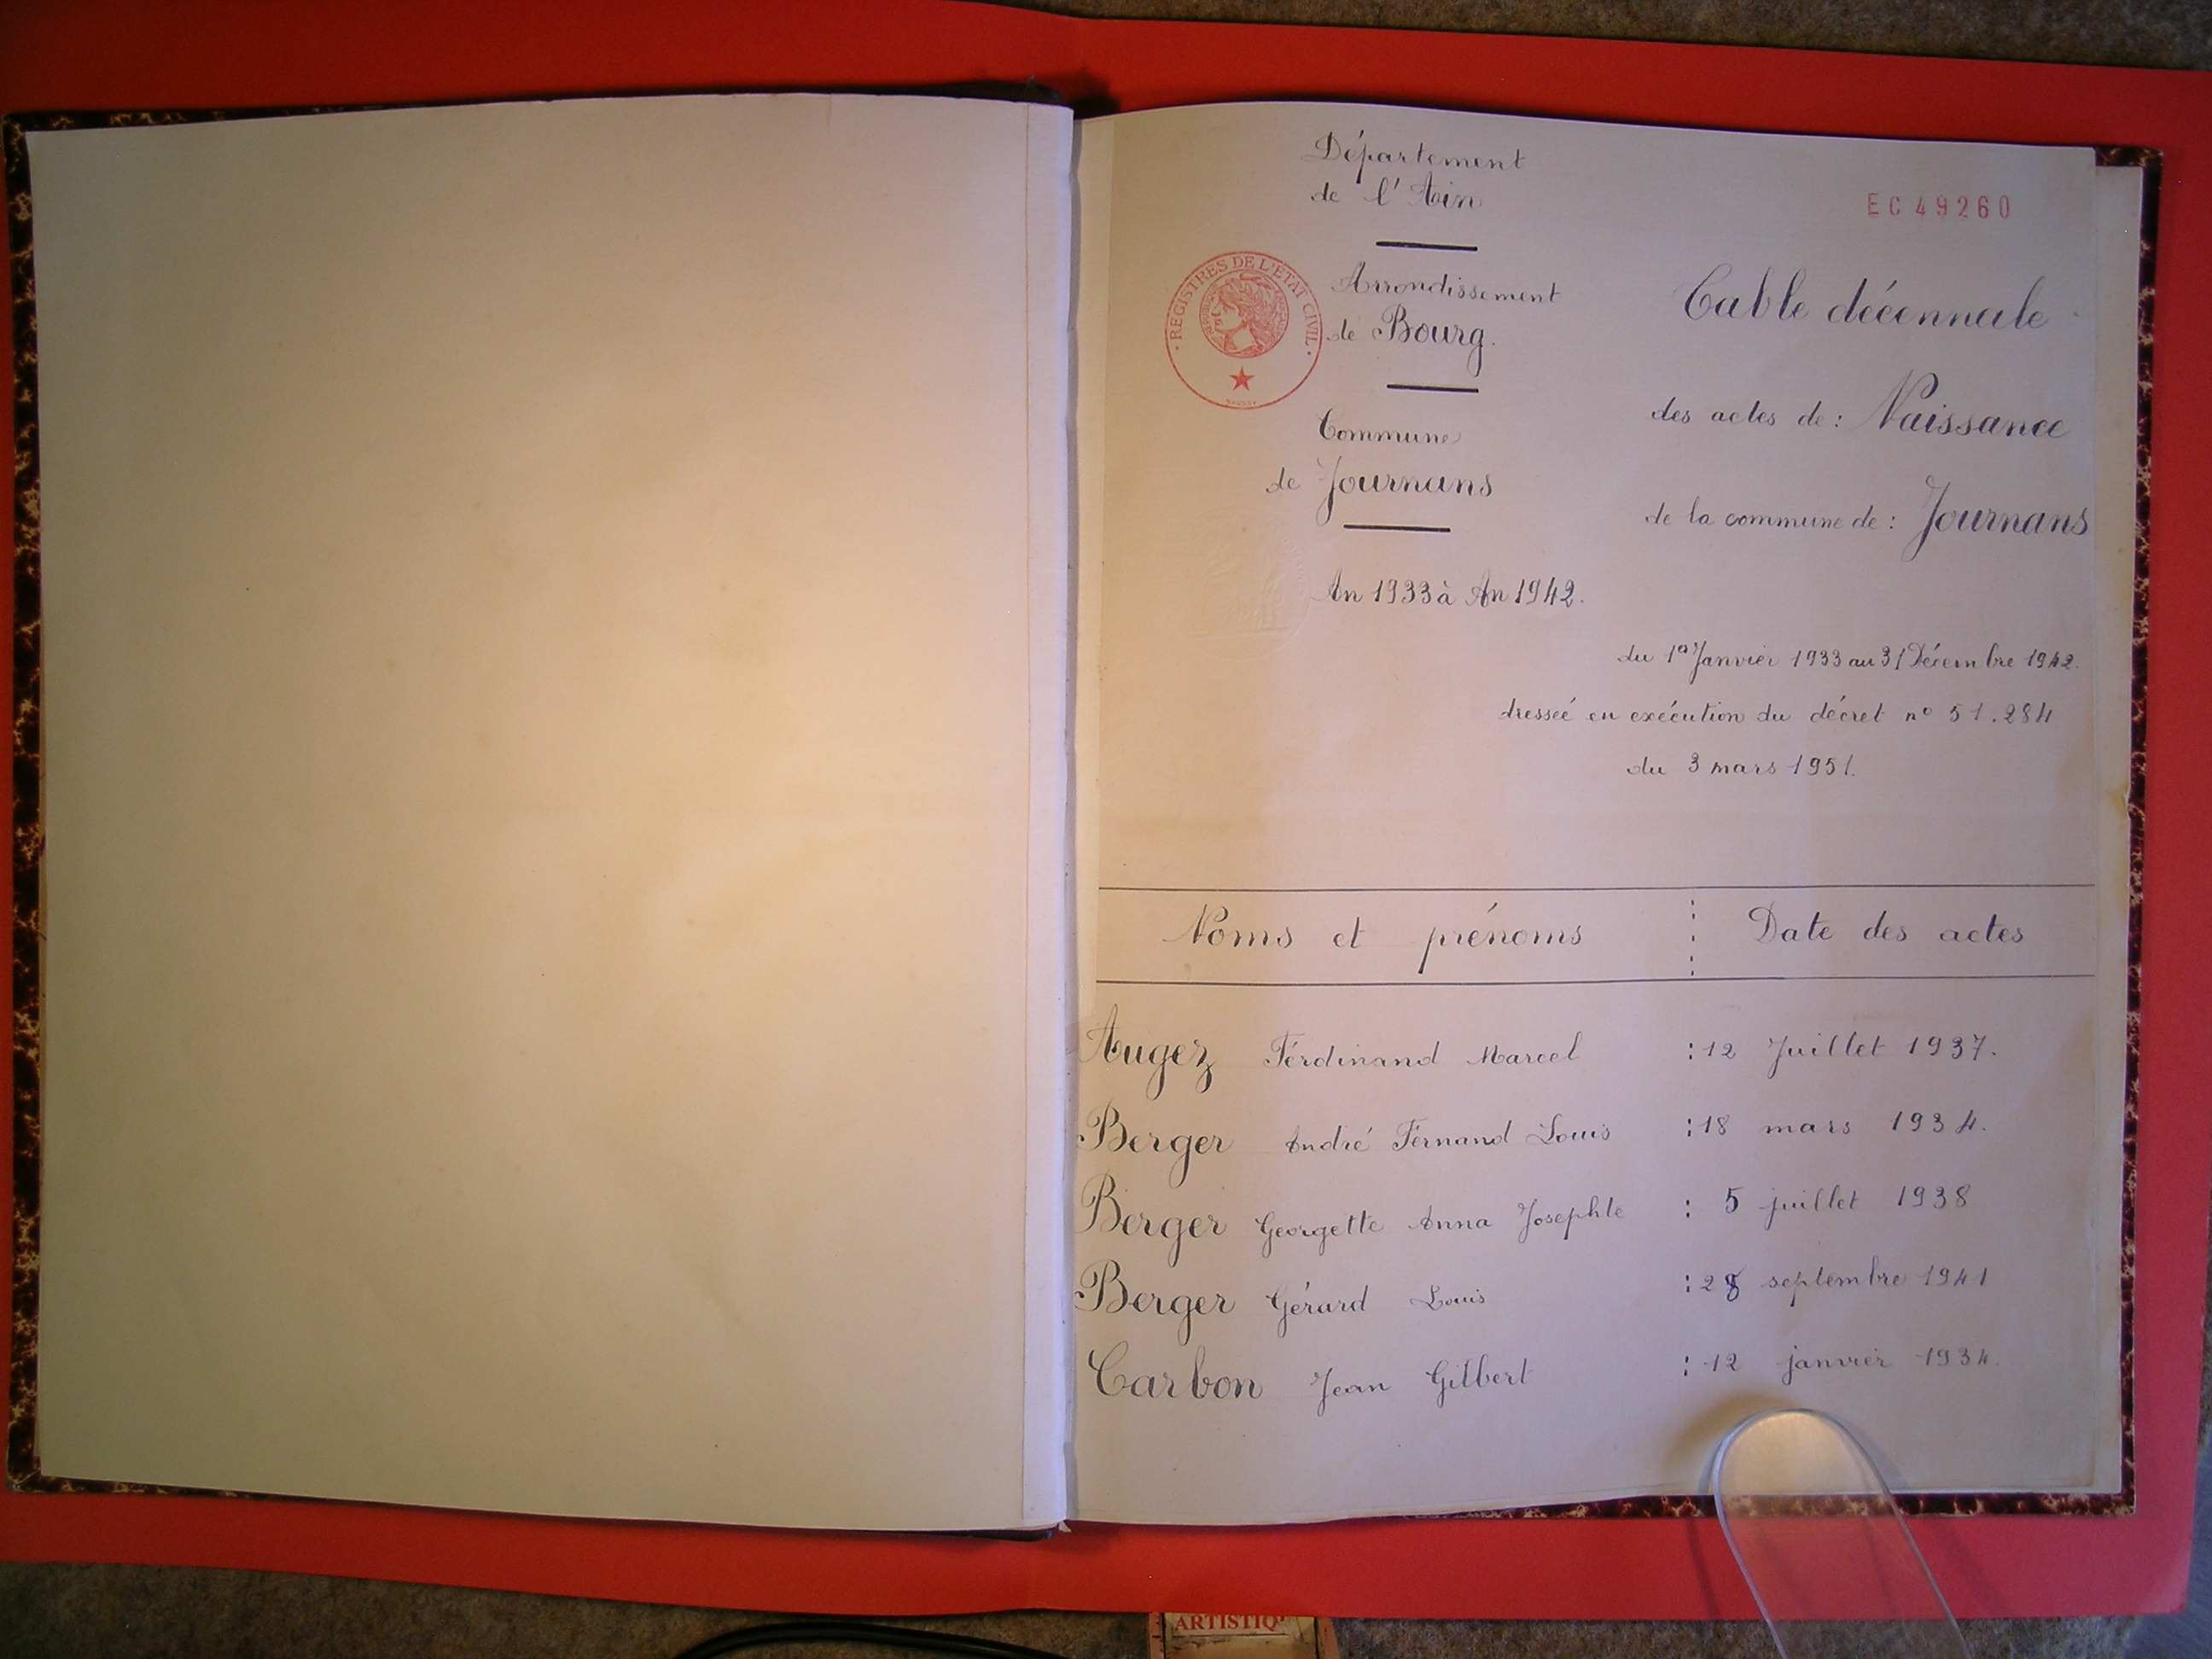 Département
de l'Ain
EC 49260
REGISTRES DE L'ETAT CIVIL
Arrondissement
de Bourg.
Commune
de Journans
An 1933 à An 1942.
Table décennale
des actes de : Naissance
de la commune de : Journans
du 1er Janvier 1933 au 31 Décembre 1942.
dressée en exécution du décret n° 51.284
du 3 mars 1951.
Noms et prénoms : Date des actes
Augez Ferdinand Marcel : 12 Juillet 1937.
Berger André Fernand Louis : 18 mars 1934.
Berger Georgette Anna Josephte : 5 juillet 1938
Berger Gérard Louis : 28 septembre 1941
Carbon Jean Gilbert : 12 janvier 1934.
ARTISTIQ